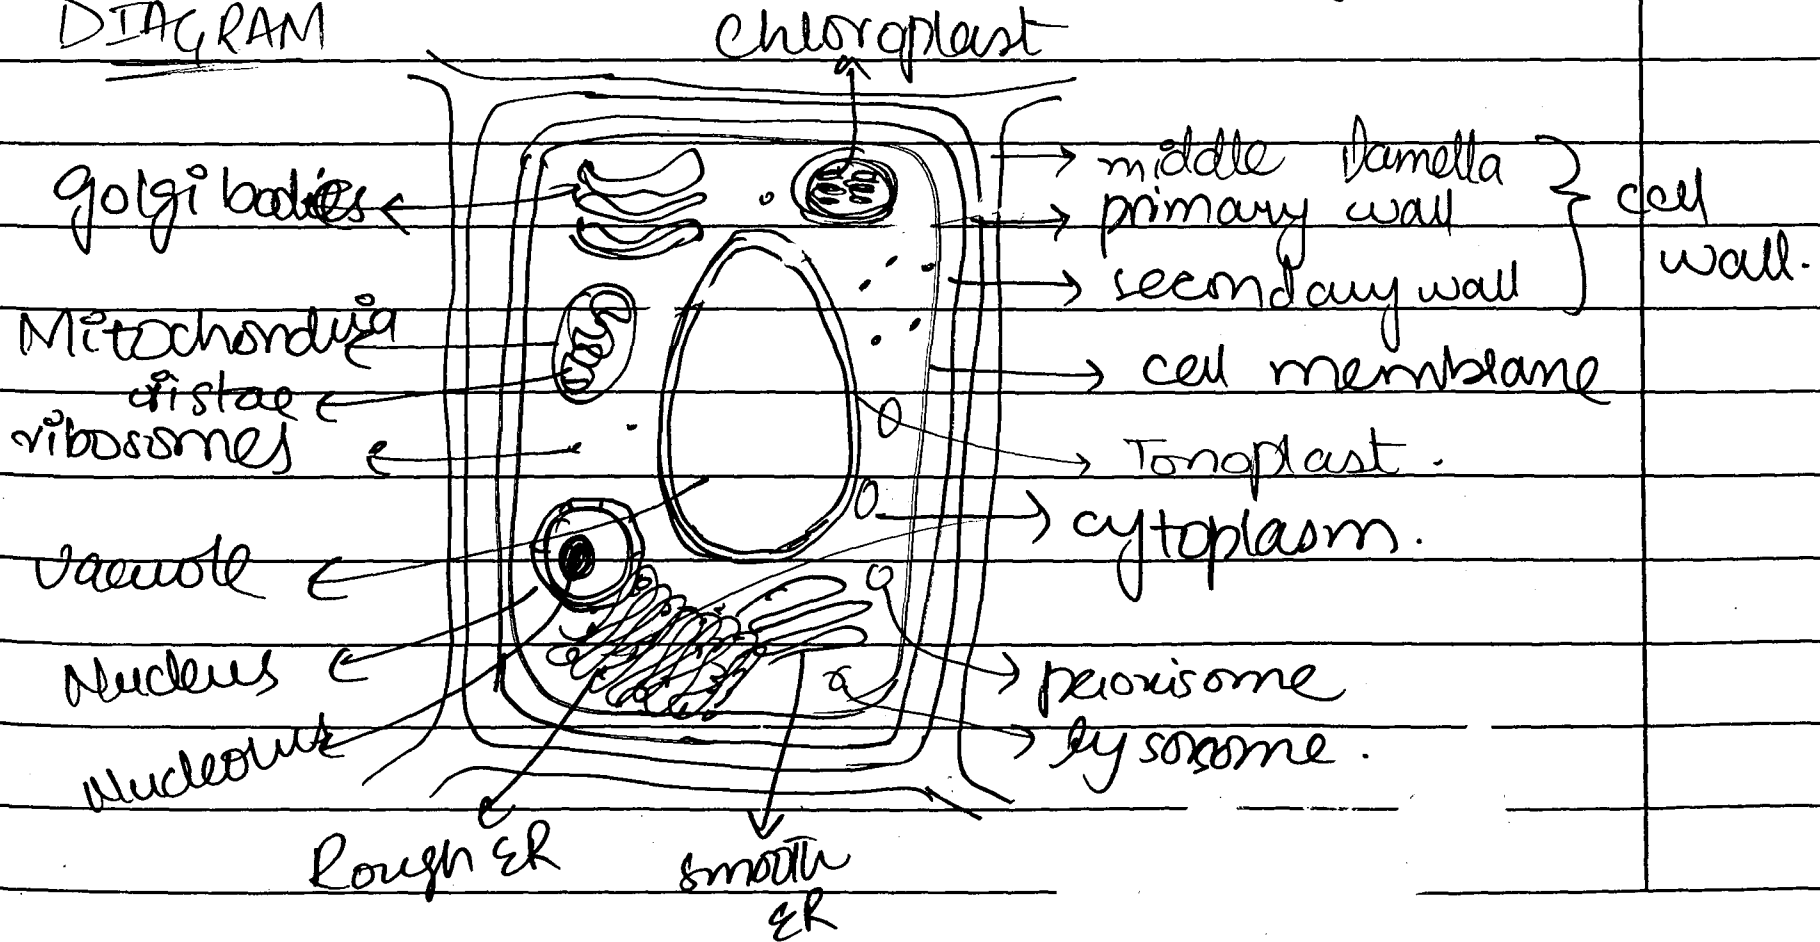 DIAGRAM
Chloroplast
Golgi bodies
Mitochondria
cristae
ribosomes
Vacuole
Nucleus
Nucleolus
Rough ER
smooth
ER
middle lamella
primary wall
secondary wall
cell
wall.
cell membrane
Tonoplast.
cytoplasm.
peroxisome
lysosome.